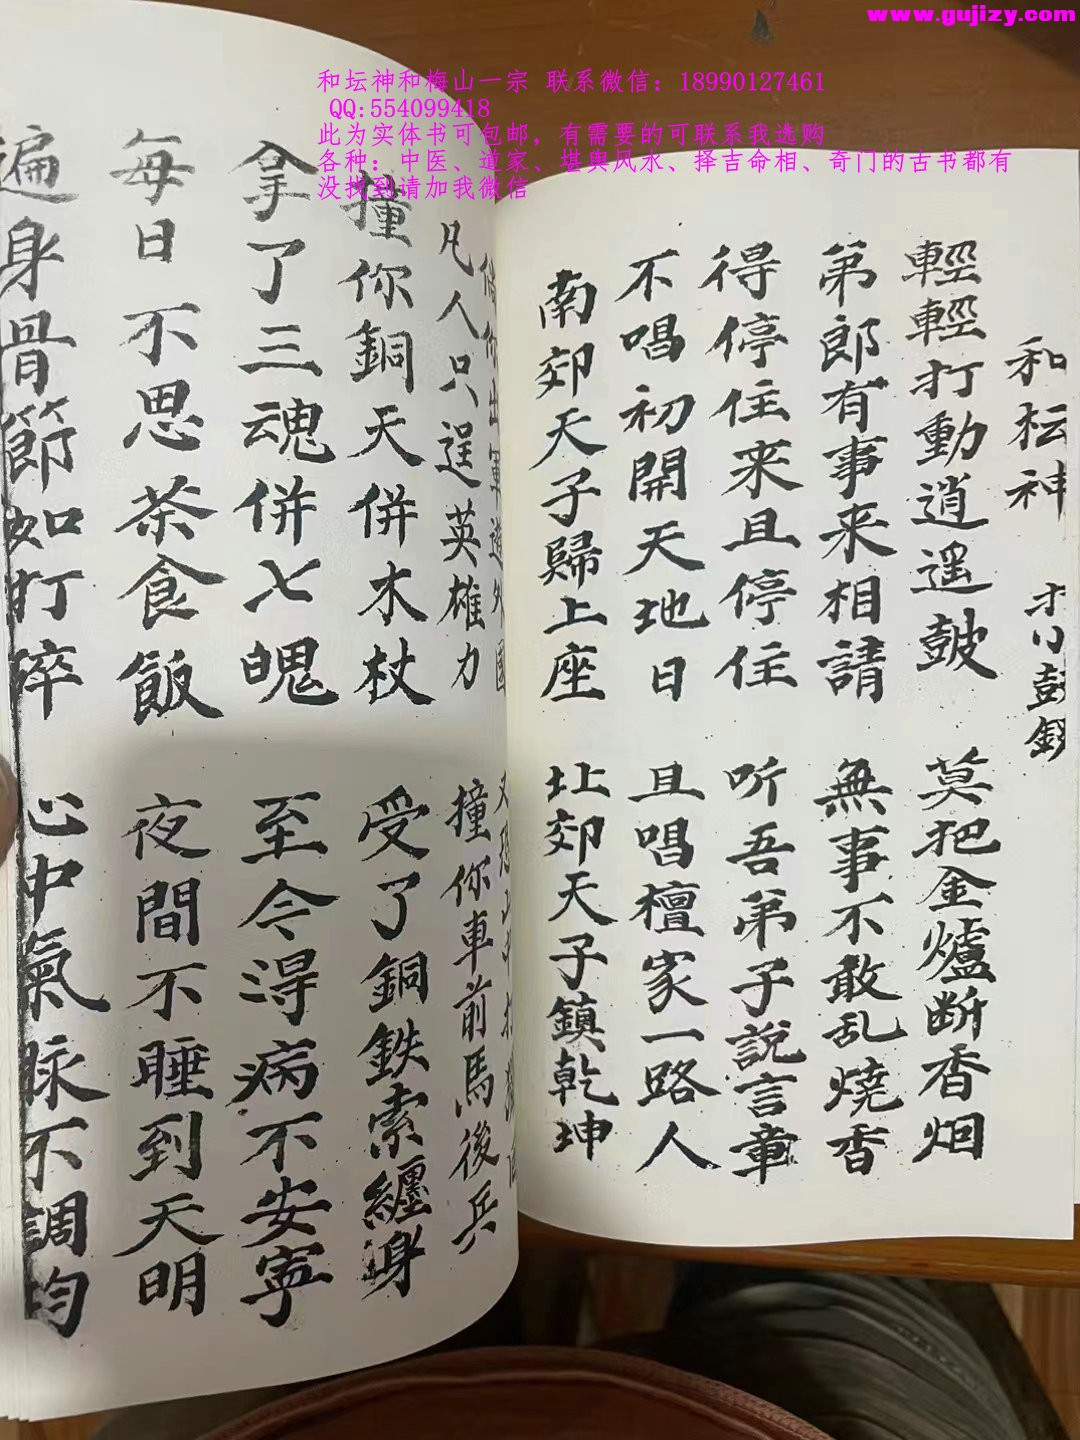 www.gujizy.com
和坛神和梅山一宗 联系微信：18990127461
QQ:554099418
此为实体书可包邮，有需要的可联系我选购
各种：中医、道家、堪舆风水、择吉命相、奇门的古书都有
没找到请加我微信
和坛神
輕輕打動逍遥皷 莫把金爐断香烟
第郎有事来相請 無事不敢乱燒香
得停住来且停住 听吾弟子說言章
不唱初開天地日 且唱檀家一路人
南郊天子歸上座 北郊天子鎮乾坤
凡人只逞英雄力 撞你車前馬後兵
撞你銅天併木杖 受了銅鉄索纏身
拿了三魂併七魄 至今淂病不安寧
每日不思茶食飯 夜間不睡到天明
遍身骨節如打碎 心中氣脉不調均